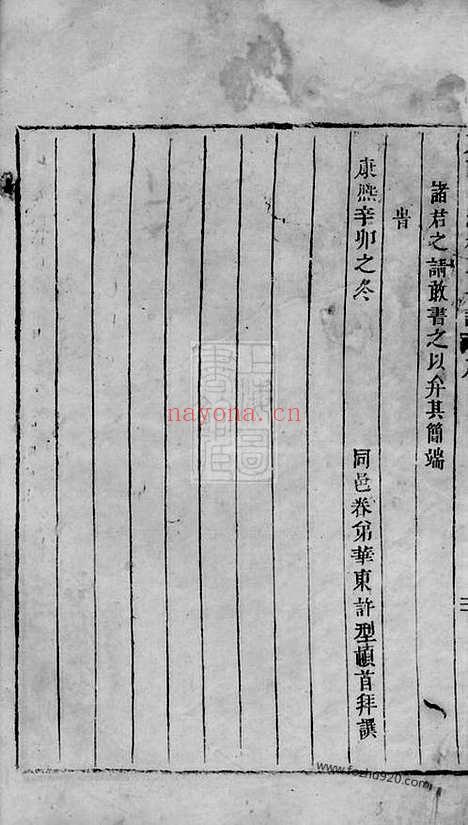 諸君之請敢書之以弁其簡端
旹
康熙辛卯之冬
同邑眷弟華東許型頓首拜譔
三
nayona.cn
www.fozhu920.com